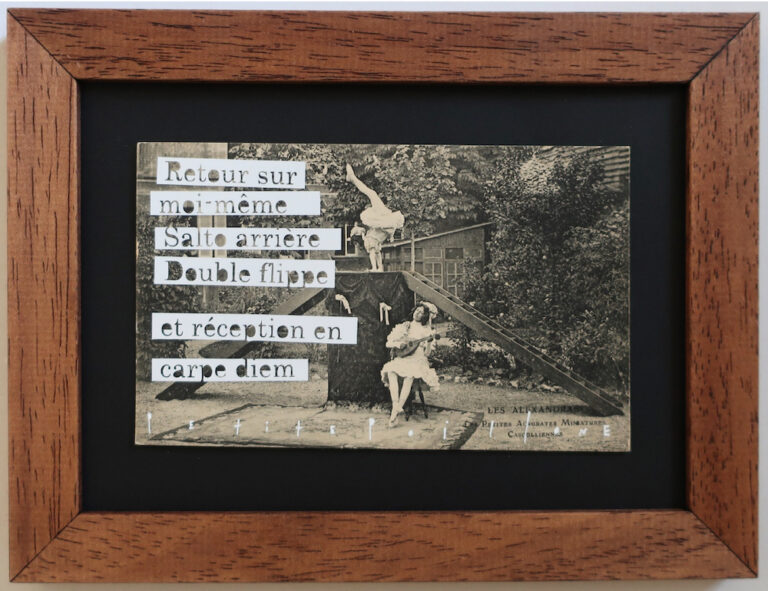 Retour sur
moi-même
Salto arrière
Double flippe
et réception en
carpe diem
LES ALEXANDRAS
Petites Acrobates Miniatures